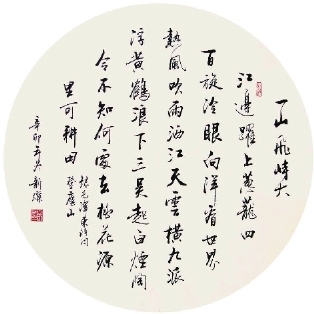 一山飛峙大
江邊躍上葱蘢四
百旋冷眼向洋看世界
熱風吹雨洒江天雲橫九派
浮黄鶴浪下三吴起白煙陶
令不知何處去桃花源
里可耕田
錄毛澤東詩詞
登廬山
辛卯年